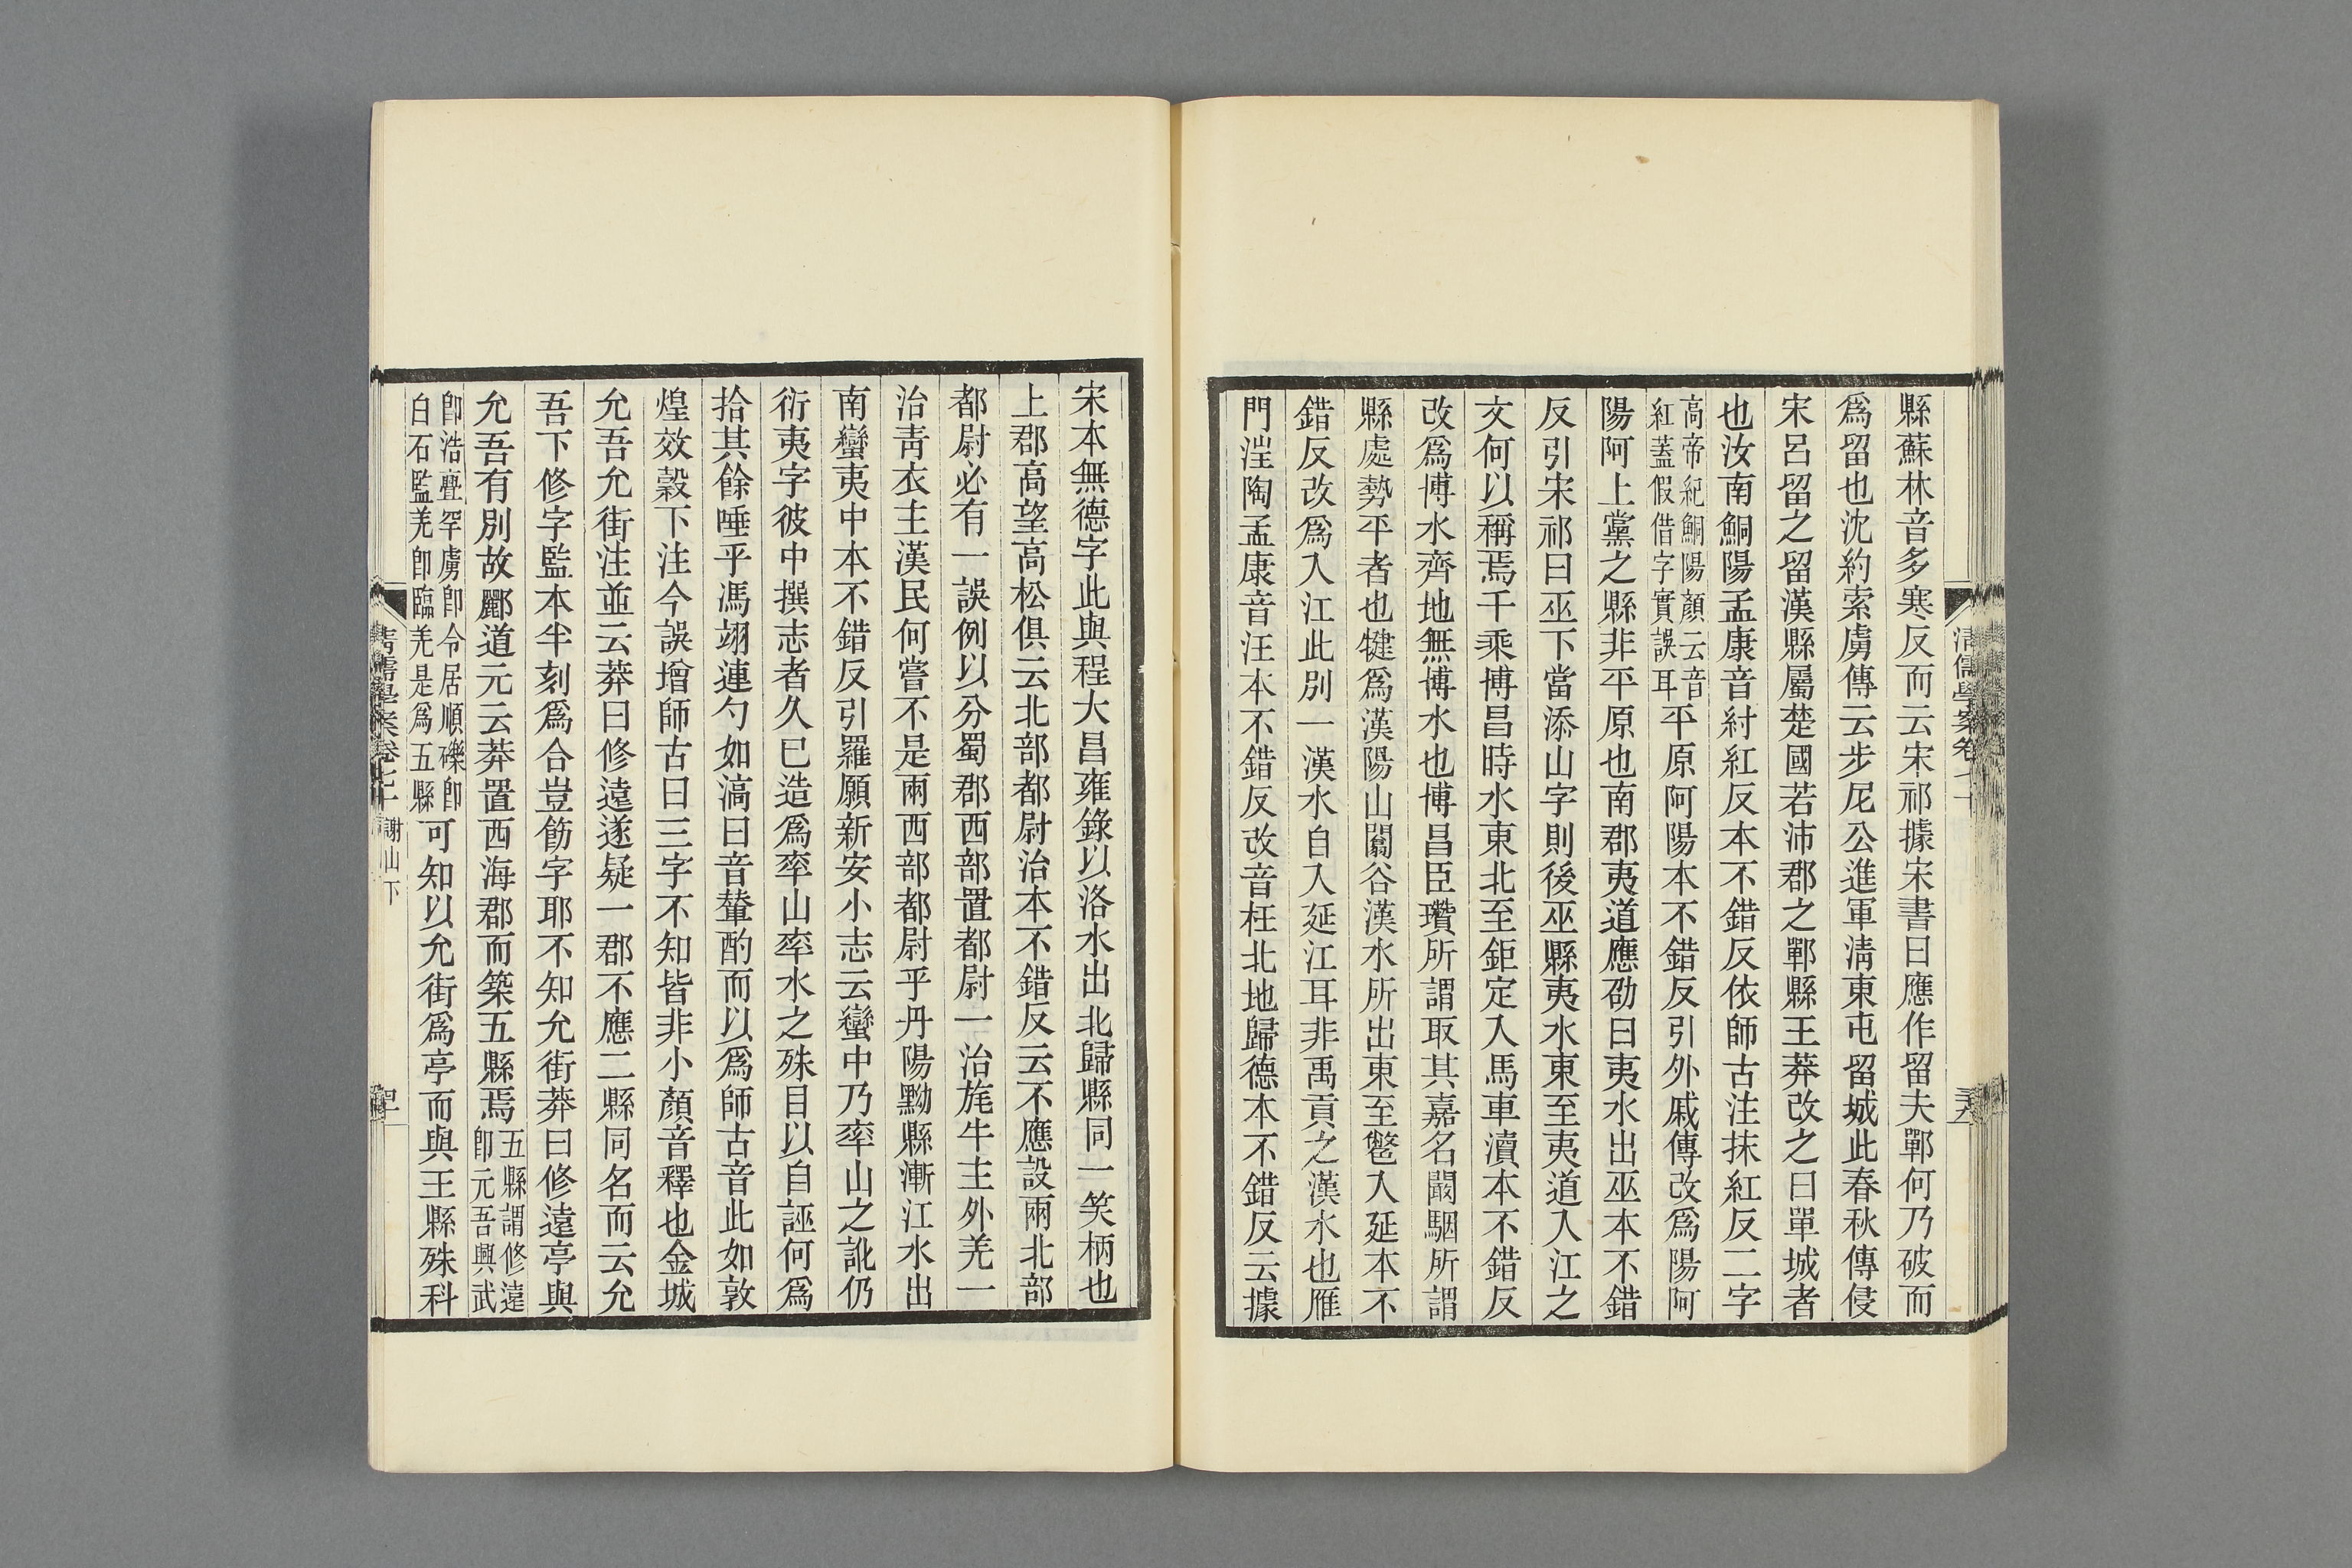 縣蘇林音多寒反而云宋祁據宋書曰應作留夫鄲何乃破而
爲留也沈約索虜傳云步尼公進軍清東屯留城此春秋傳侵
宋呂留之留漢縣屬楚國若沛郡之鄲縣王莽改之曰單城者
也汝南鮦陽孟康音紂紅反本不錯反依師古注抹紅反二字
高帝紀鮦陽顏云音
紅蓋假借字實誤耳
平原阿陽本不錯反引外戚傳改爲陽阿
陽阿上黨之縣非平原也南郡夷道應劭曰夷水出巫本不錯
反引宋祁曰巫下當添山字則後巫縣夷水東至夷道入江之
文何以稱焉千乘博昌時水東北至鉅定入馬車瀆本不錯反
改爲博水齊地無博水也博昌臣瓚所謂取其嘉名闞駰所謂
縣處勢平者也犍爲漢陽山闟谷漢水所出東至鄨入延本不
錯反改爲入江此別一漢水自入延江耳非禹貢之漢水也雁
門𣵠陶孟康音汪本不錯反改音枉北地歸德本不錯反云據
清儒學案卷
宋本無德字此與程大昌雍錄以洛水出北歸縣同一笑柄也
上郡高望高松俱云北部都尉治本不錯反云不應設兩北部
都尉必有一誤例以分蜀郡西部置都尉一治旄牛主外羌一
治青衣主漢民何嘗不是兩西部都尉乎丹陽黝縣漸江水出
南蠻夷中本不錯反引羅願新安小志云蠻中乃率山之訛仍
衍夷字彼中撰志者久已造爲率山率水之殊目以自誣何爲
拾其餘唾乎馮翊連勺如滈曰音輦酌而以爲師古音此如敦
煌效穀下注今誤增師古曰三字不知皆非小顏音釋也金城
允吾允街注並云莽曰修遠遂疑一郡不應二縣同名而云允
吾下修字監本半刻爲合豈飭字耶不知允街莽曰修遠亭與
允吾有別故酈道元云莽置西海郡而築五縣焉
五縣謂修遠
卽元吾興武
卽浩亹罕虜卽令居順礫卽
白石監羌卽臨羌是爲五縣
可知以允街爲亭而與王縣殊科
清儒學案卷七十
謝山下